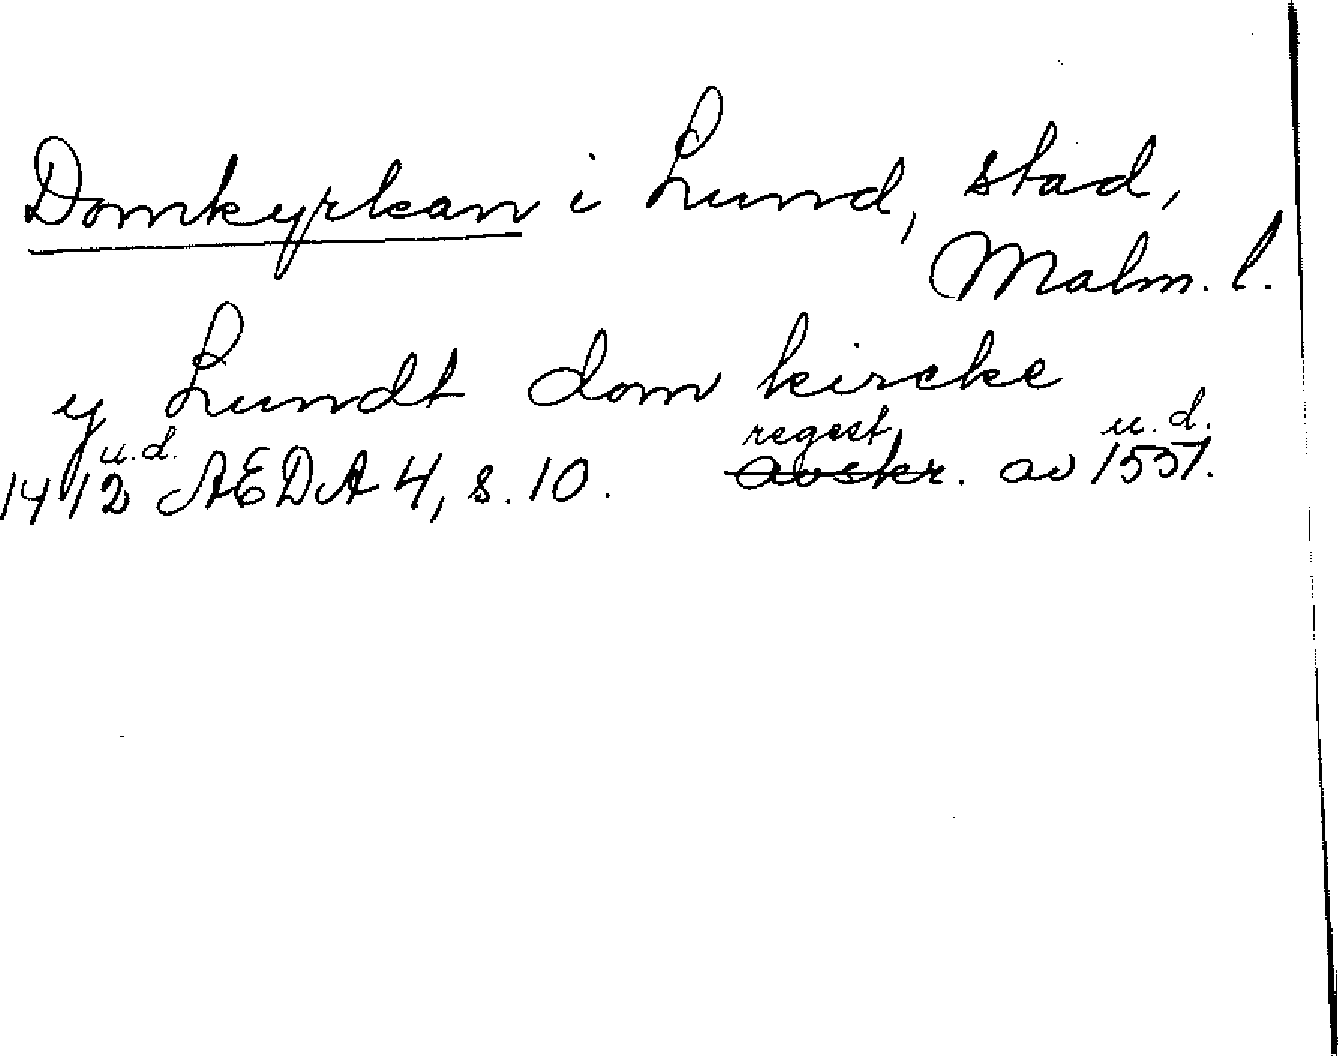 Domkyrkan i Lund, stad,
Malm. l.
y Lundt dom kircke
u.d. regest u.d.
1412 AEDA 4, s. 10. avskr. av 1551.